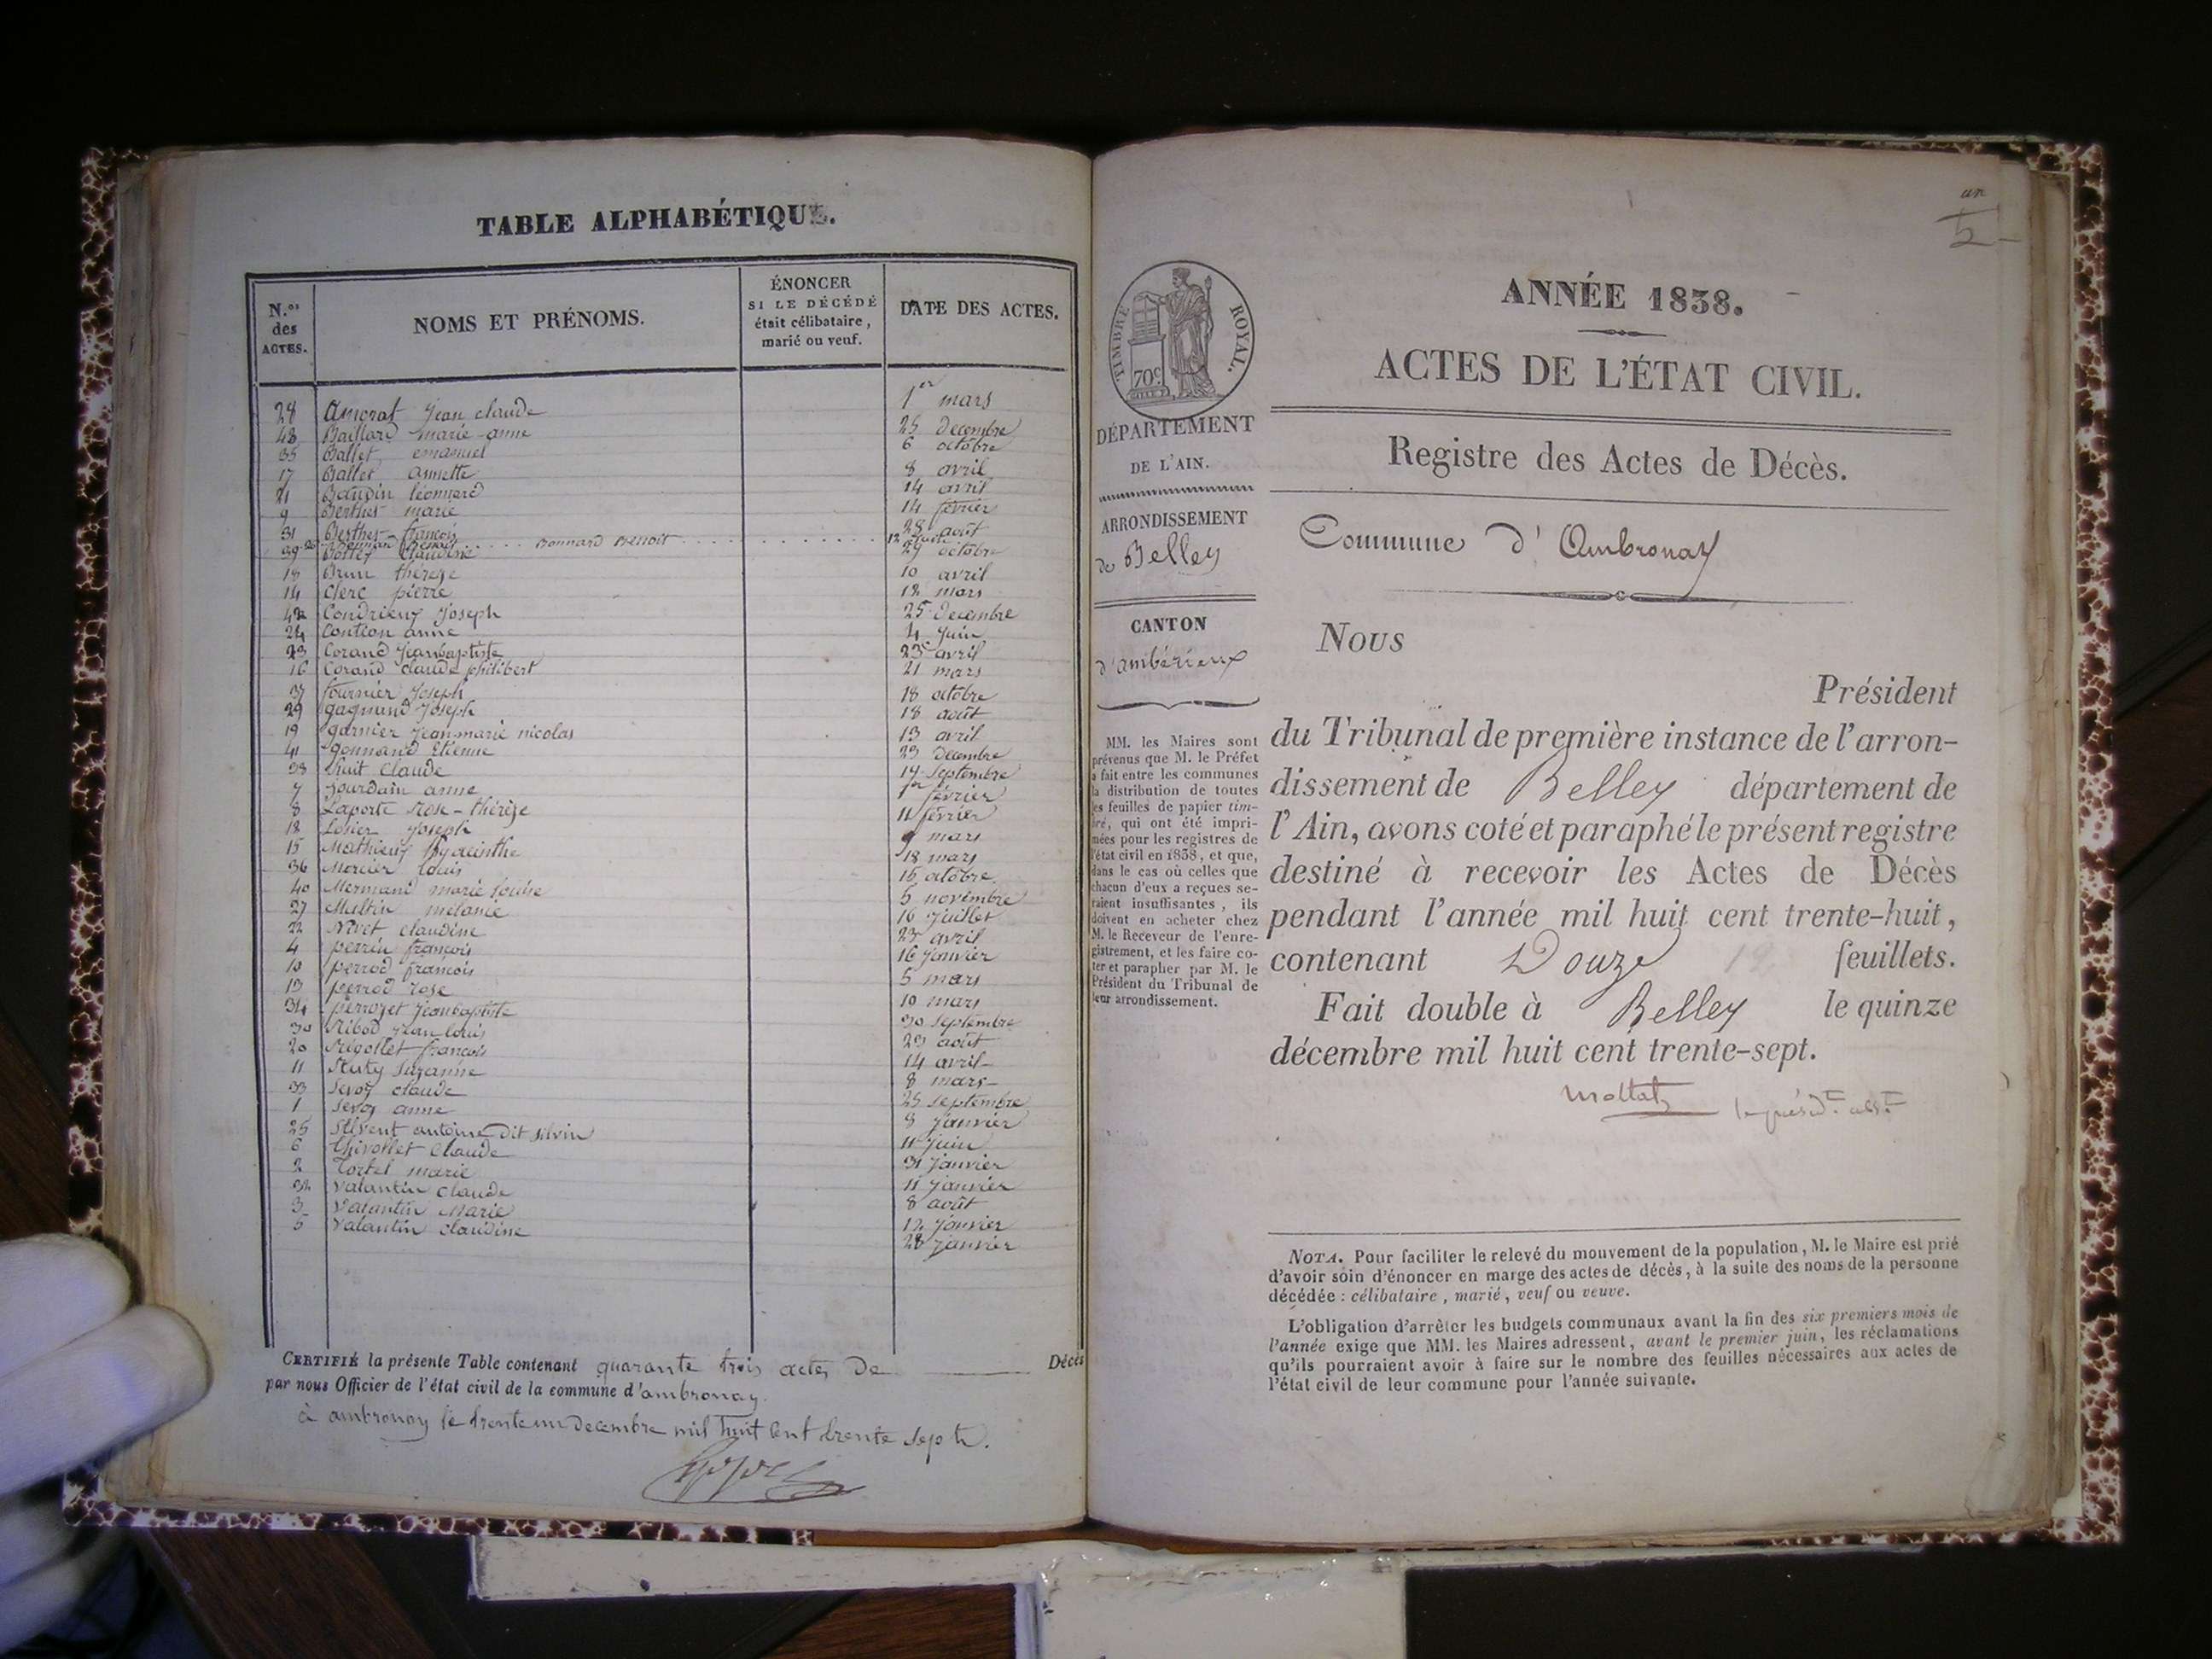 TABLE ALPHABÉTIQUE.
N.os des ACTES.
NOMS ET PRÉNOMS.
ÉNONCER SI LE DÉCÉDÉ était célibataire, marié ou veuf.
DATE DES ACTES.
28 Amorat Jean claude 1er mars
43 Baillard marie-anne 25 decembre
35 Ballet emanuel 6 octobre
17 Ballet annette 8 avril
21 Baudin léonnard 14 avril
9 Berthet marie 14 février
31 Berthet françois 28 août
Bonnard Benoit
39 Bottex Claudine 29 octobre
18 Brun thérèze 10 avril
14 Clerc pierre 12 mars
42 Condrieux Joseph 25 decembre
24 Contion anne 4 Juin
23 Corand Jeanbaptiste 23 avril
16 Corand claude philibert 21 mars
37 fournier Joseph 18 octobre
29 gagnard Joseph 18 août
19 garnier Jean-marie nicolas 13 avril
41 gonnand Etienne 23 decembre
38 huit Claude 19 septembre
7 Jourdain anne 1er février
8 Laporte rose-thérèze 11 février
12 Losier Joseph 9 mars
15 Mathieux hyacinthe 18 mars
36 Mercier Louis 16 octobre
40 Mermand marie Louise 5 novembre
27 Multin mélanie 16 Juillet
22 Nivet claudine 23 avril
4 perrin françois 16 Janvier
10 perrod françois 5 mars
13 perrod rose 10 mars
34 perrozet Jeanbaptiste 30 septembre
30 Ribod Jean louis 23 août
20 Rigollet françois 14 avril
11 Ruty Suzanne 8 mars
33 Sevoz claude 25 septembre
1 Sevoz anne 8 Janvier
25 Silvent antoine dit silvin 11 Juin
6 Thivollet Claude 31 Janvier
2 Tortel marie 11 Janvier
32 Valantin Claude 8 août
3 Valantin Marie 12 Janvier
5 Valantin claudine 28 Janvier
CERTIFIÉ la présente Table contenant quarante trois actes De Décès
par nous Officier de l'état civil de la commune d'ambronay.
à ambronay le trente un Decembre mil huit Cent trente Sept.
un
ANNÉE 1838.
ACTES DE L'ÉTAT CIVIL.
Registre des Actes de Décès.
Commune d'Ambronay
TIMBRE ROYAL.
70c
DÉPARTEMENT
DE L'AIN.
ARRONDISSEMENT
de Belley
CANTON
d'ambérieux
MM. les Maires sont
prévenus que M. le Préfet
a fait entre les communes
la distribution de toutes
les feuilles de papier tim-
bré, qui ont été impri-
mées pour les registres de
l'état civil en 1838, et que,
dans le cas où celles que
chacun d'eux a reçues se-
raient insuffisantes, ils
doivent en acheter chez
M. le Receveur de l'enre-
gistrement, et les faire co-
ter et parapher par M. le
Président du Tribunal de
leur arrondissement.
Nous
Président
du Tribunal de première instance de l'arron-
dissement de Belley département de
l'Ain, avons coté et paraphé le présent registre
destiné à recevoir les Actes de Décès
pendant l'année mil huit cent trente-huit,
contenant Douze 12 feuillets.
Fait double à Belley le quinze
décembre mil huit cent trente-sept.
NOTA. Pour faciliter le relevé du mouvement de la population, M. le Maire est prié
d'avoir soin d'énoncer en marge des actes de décès, à la suite des noms de la personne
décédée : célibataire, marié, veuf ou veuve.
L'obligation d'arrêter les budgets communaux avant la fin des six premiers mois de
l'année exige que MM. les Maires adressent, avant le premier juin, les réclamations
qu'ils pourraient avoir à faire sur le nombre des feuilles nécessaires aux actes de
l'état civil de leur commune pour l'année suivante.